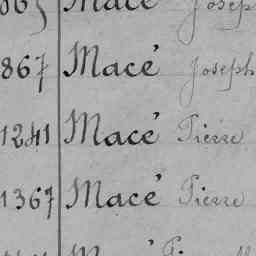 Macé Joseph
867 Macé Joseph
1241 Macé Pierre
1367 Macé Pierre